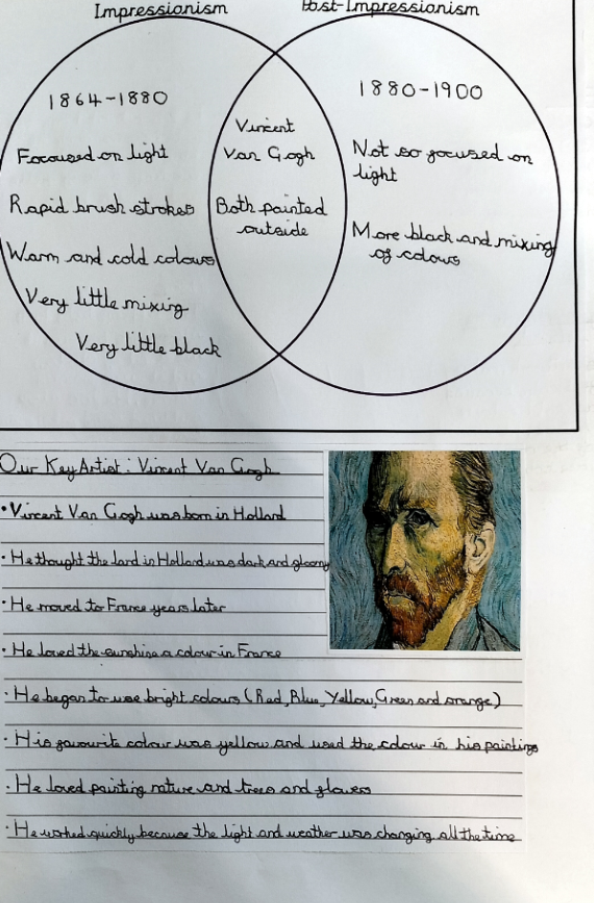 Impressionism
Post-Impressionism
1864-1880
Focused on light
Rapid brush strokes
Warm and cold colours
Very little mixing
Very little black
Vincent
Van Gogh
Both painted
outside
1880-1900
Not so focused on
light
More black and mixing
of colours
Our Key Artist: Vincent Van Gogh
• Vincent Van Gogh was born in Holland
• He thought the land in Holland was dark and gloomy
• He moved to France years later
• He loved the sunshine a colour in France
• He began to use bright colours (Red, Blue, Yellow, Green and orange)
• His favourite colour was yellow and used the colour in his paintings
• He loved painting nature and trees and flowers
• He worked quickly because the light and weather was changing all the time